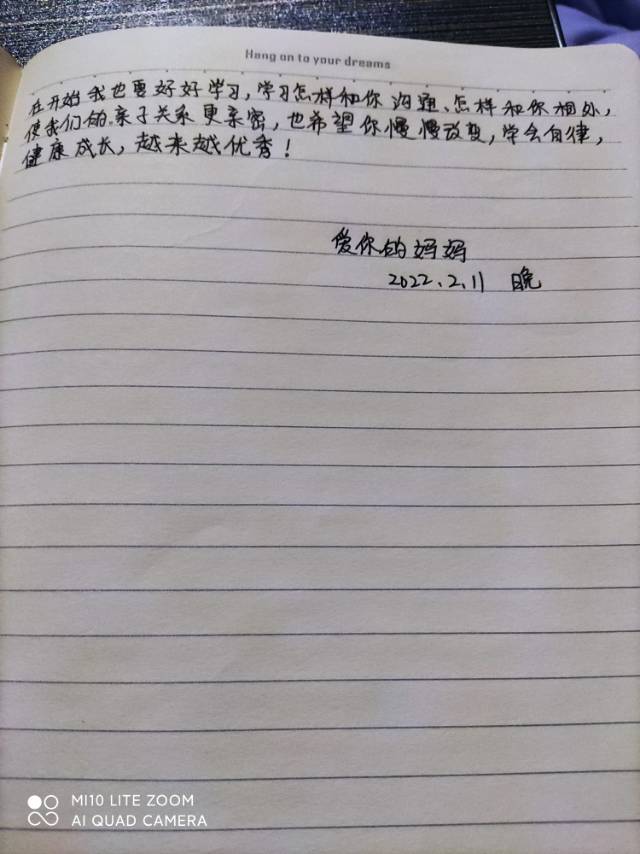 Hang on to your dreams
在开始我也要好好学习,学习怎样和你沟通、怎样和你相处,
使我们的亲子关系更亲密,也希望你慢慢改变,学会自律,
健康成长,越来越优秀!
爱你的妈妈
2022.2.11 晚
MI10 LITE ZOOM
AI QUAD CAMERA